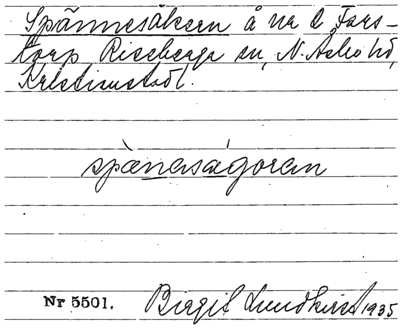 Spännesåkern å na l Fars-
torp, Riseberga sn, N. Åsbo hd,
Kristianstad l.
spànasågoran
Nr 5501. Birgit Lundkvist 1935